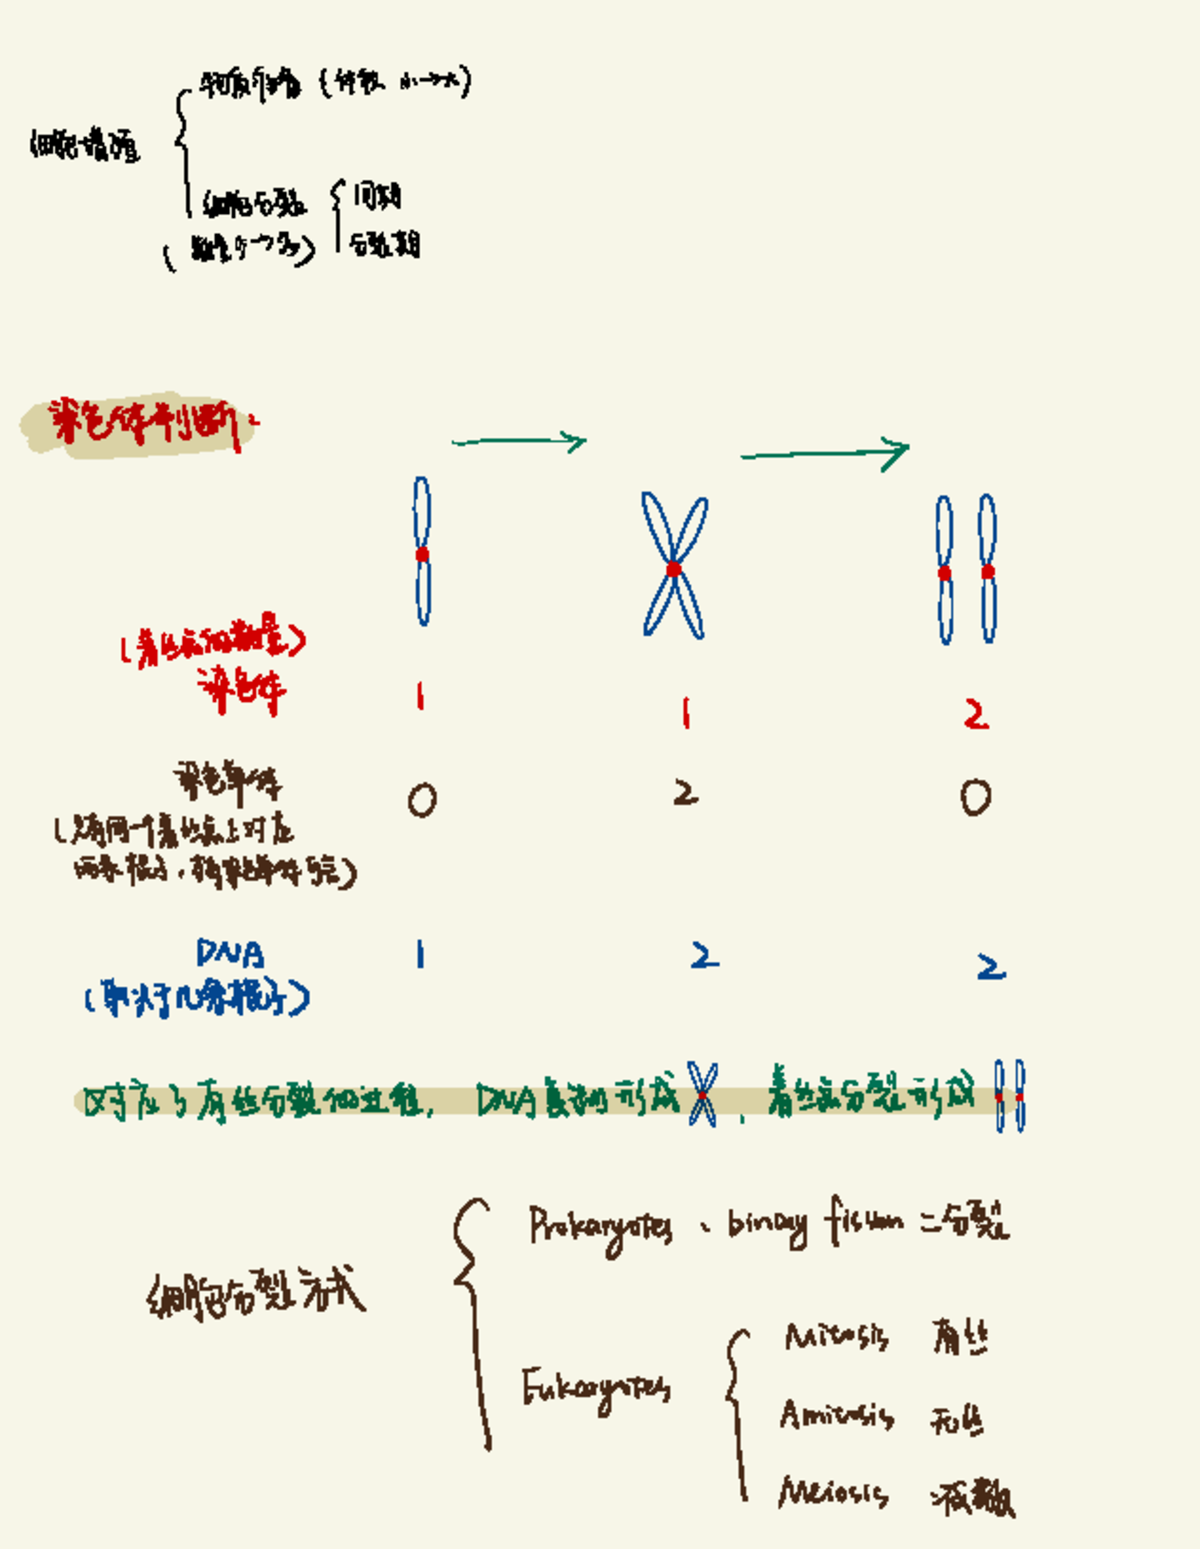 物质准备（体积 小→大）
细胞增殖
细胞分裂 间期
（数量少→多） 分裂期
染色体判断：
（着丝点的数量）
染色体 1 1 2
染色单体 0 2 0
（只有同一个着丝点上对应
两条棍子，有染色单体）
DNA 1 2 2
（取决于几条棍子）
对应了有丝分裂的过程， DNA复制形成 ，着丝点分裂形成
Prokaryotes、binary fission 二分裂
细胞分裂方式
Mitosis 有丝
Eukaryotes
Amitosis 无丝
Meiosis 减数